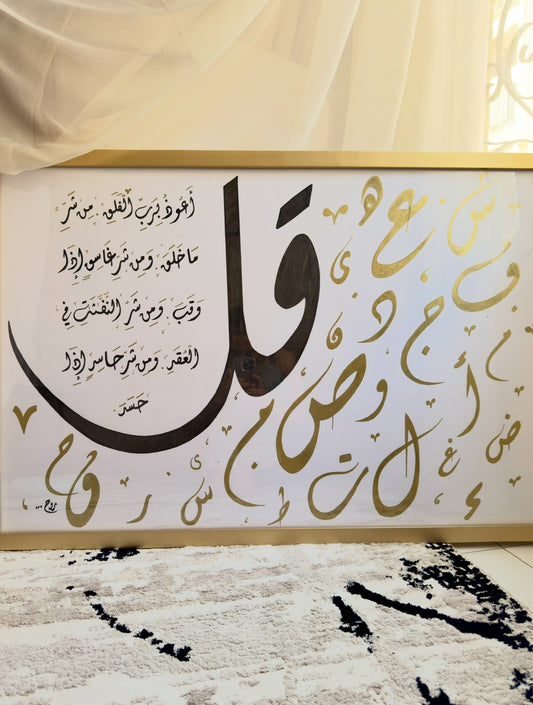 قل
أعوذ برب الفلق من شر
ما خلق ومن شر غاسق إذا
وقب ومن شر النفثت في
العقد ومن شر حاسد إذا
حسد
ش
ع
ه
ي
و
د
خ
م
أ
ص
و
م
ض
غ
ل
ت
ء
ط
س
ر
و
ح